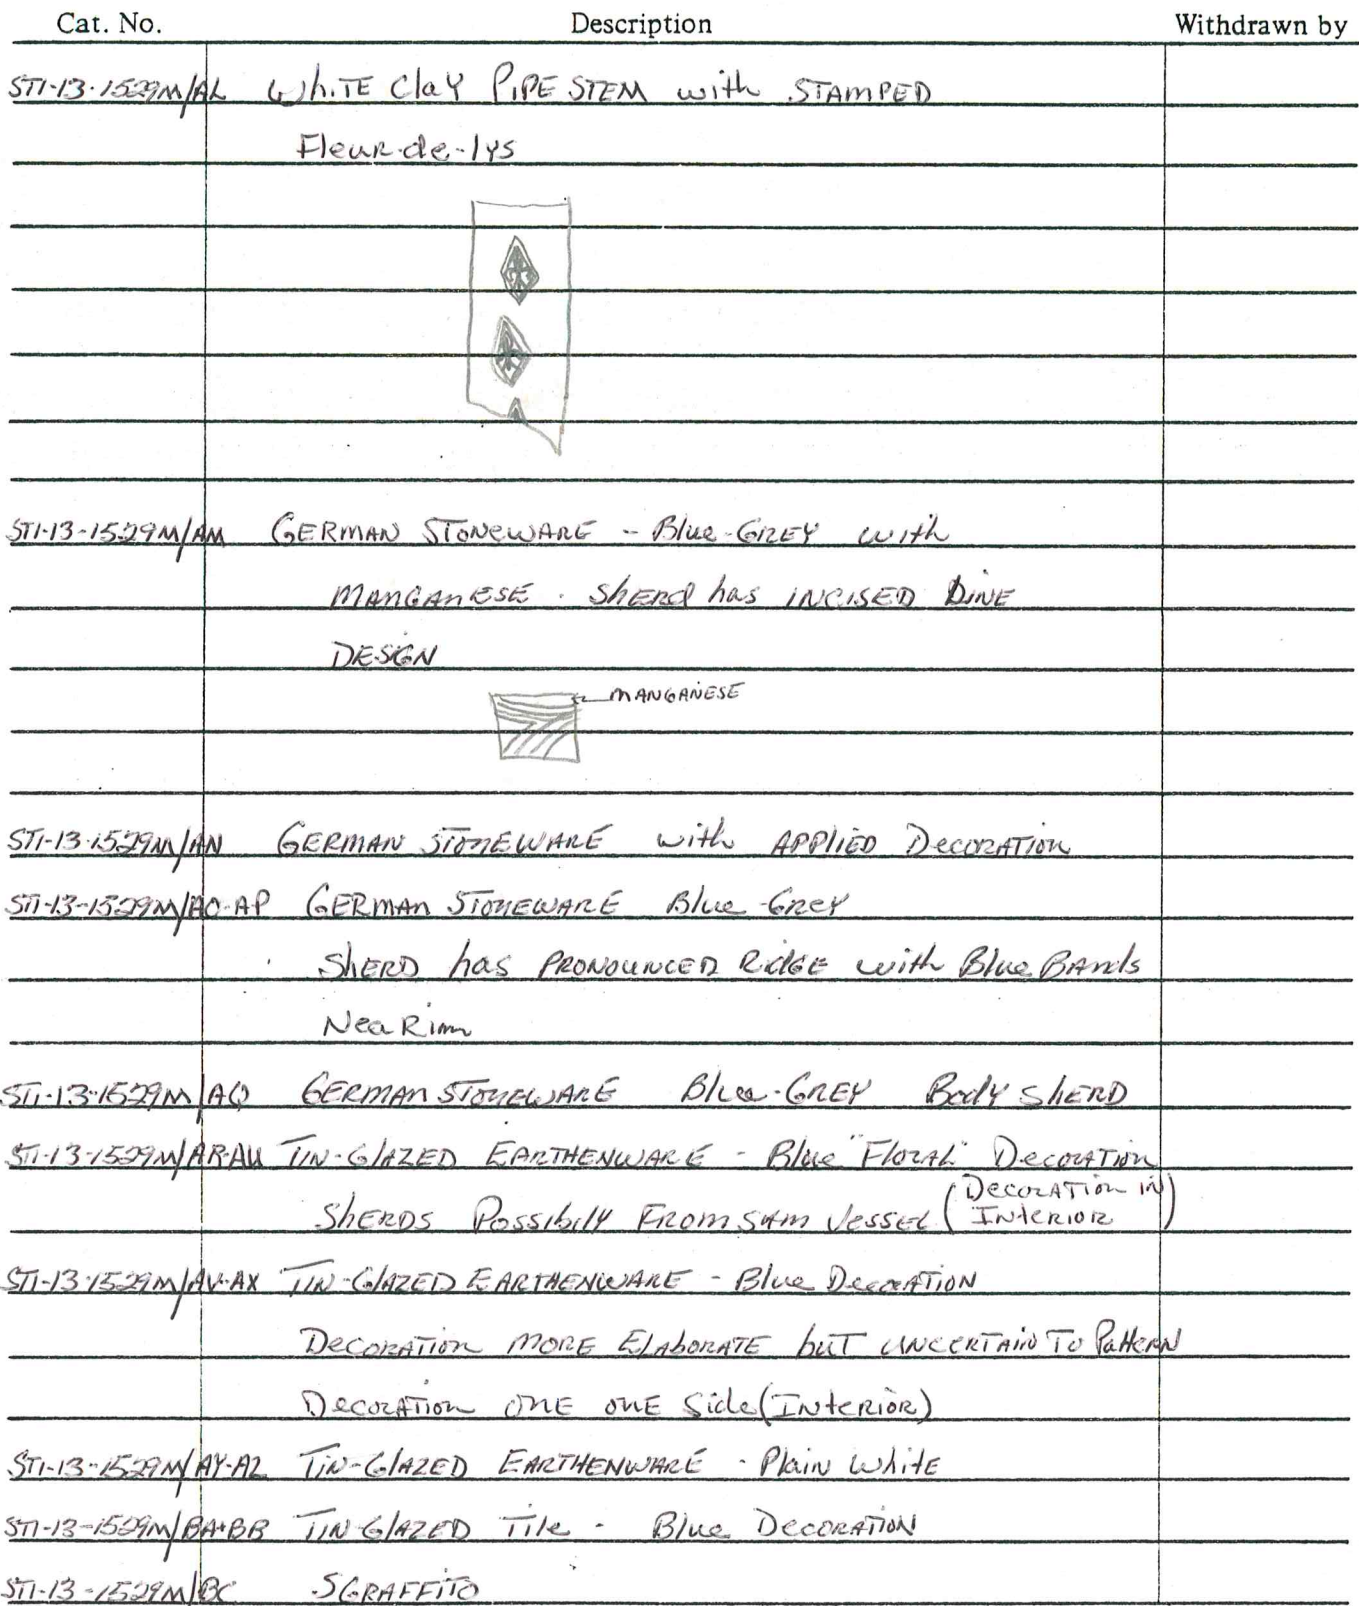 Cat. No. Description Withdrawn by
ST1-13-1529M/AL White Clay PIPE STEM with STAMPED
Fleur-de-lys
ST1-13-1529M/AM GERMAN STONEWARE - Blue-GREY with
MANGANESE. Sherd has INCISED LINE
DESIGN
MANGANESE
ST1-13-1529M/AN GERMAN STONEWARE with APPLIED Decoration
ST1-13-1529M/AO-AP GERMAN STONEWARE Blue-Grey
SHERD has PRONOUNCED RidGE with Blue BAnds
Nea Rim
ST1-13-1529M/AQ GERMAN STONEWARE Blue-GREY Body SHERD
ST1-13-1529M/AR-AU TIN-GlAZED EARTHENWARE - Blue "Floral" Decoration
SHERDS Possibily From SAM Vessel (Decoration in
Interior)
ST1-13-1529M/AV-AX TIN-GlAZED EARTHENWARE - Blue Decoration
Decoration MORE ElABORATE but UNCERTAIN To PatteRN
Decoration ONE ONE Side (Interior)
ST1-13-1529M/AY-AZ TIN-GlAZED EARTHENWARE - Plain White
ST1-13-1529M/BA+BB TIN-GlAZED Tile - Blue Decoration
ST1-13-1529M/BC SGRAFFITO